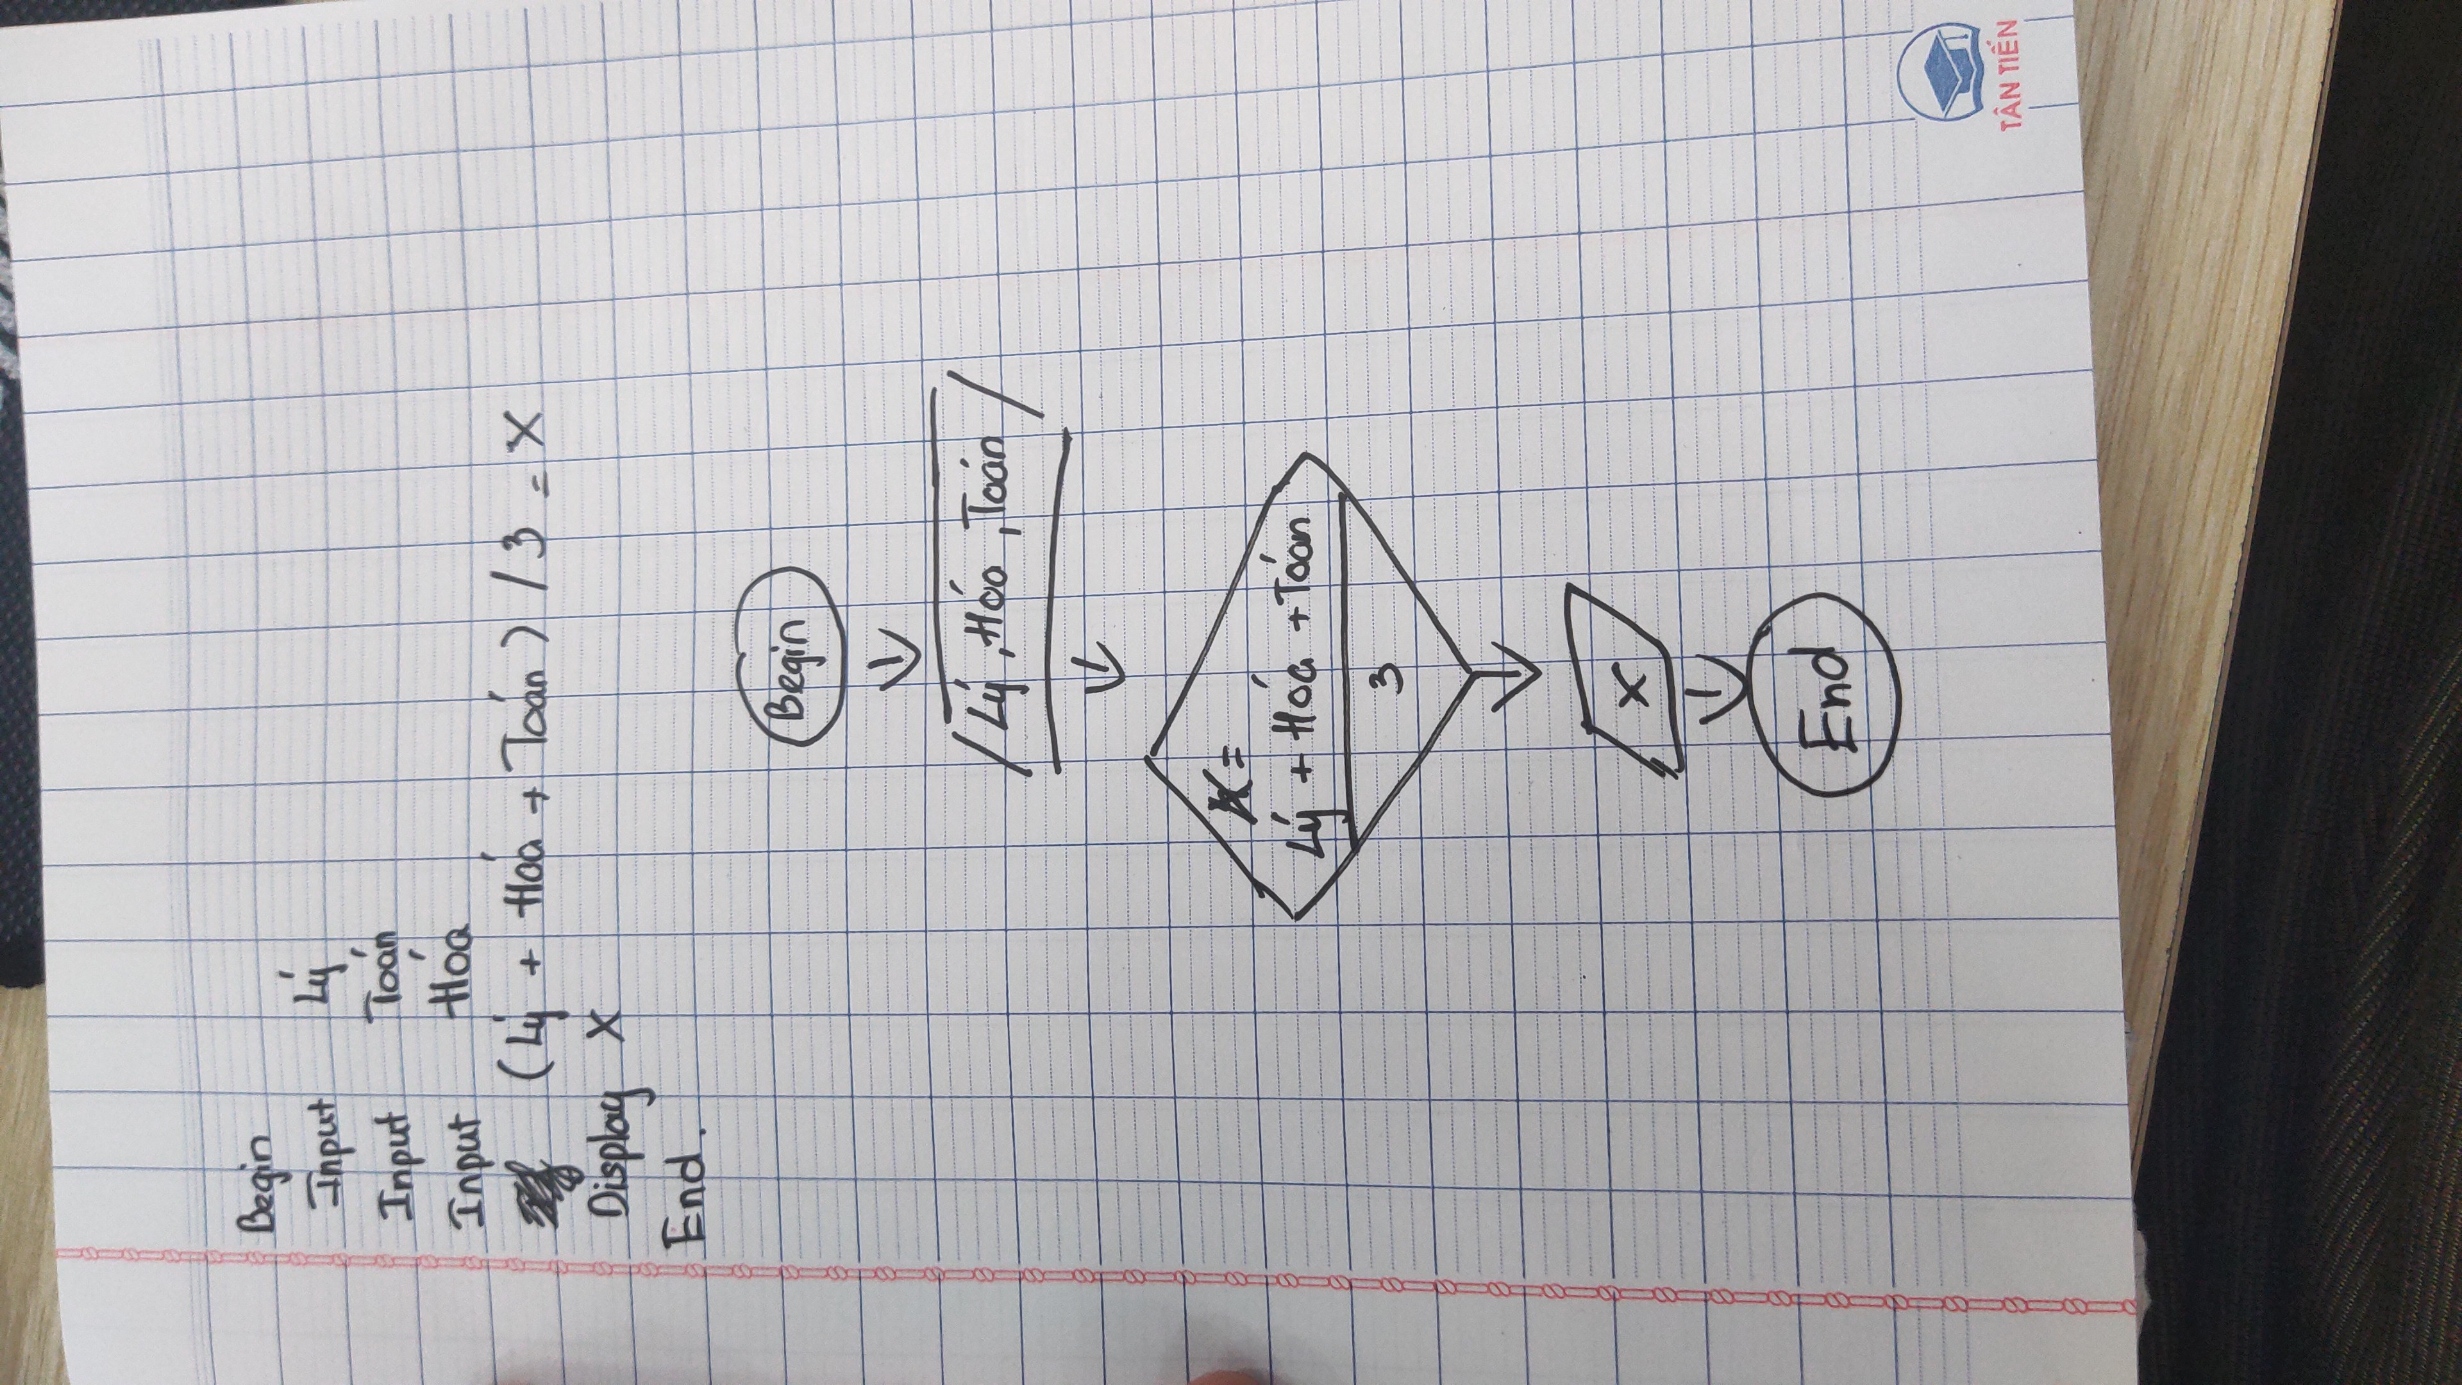 Begin
Input Lý
Input Toán
Input Hóa
(Lý + Hoá + Toán) / 3 = X
Display X
End.
Begin
/ Lý, Hóa, Toán /
X =
Lý + Hóa + Toán
3
X
End
TÂN TIẾN